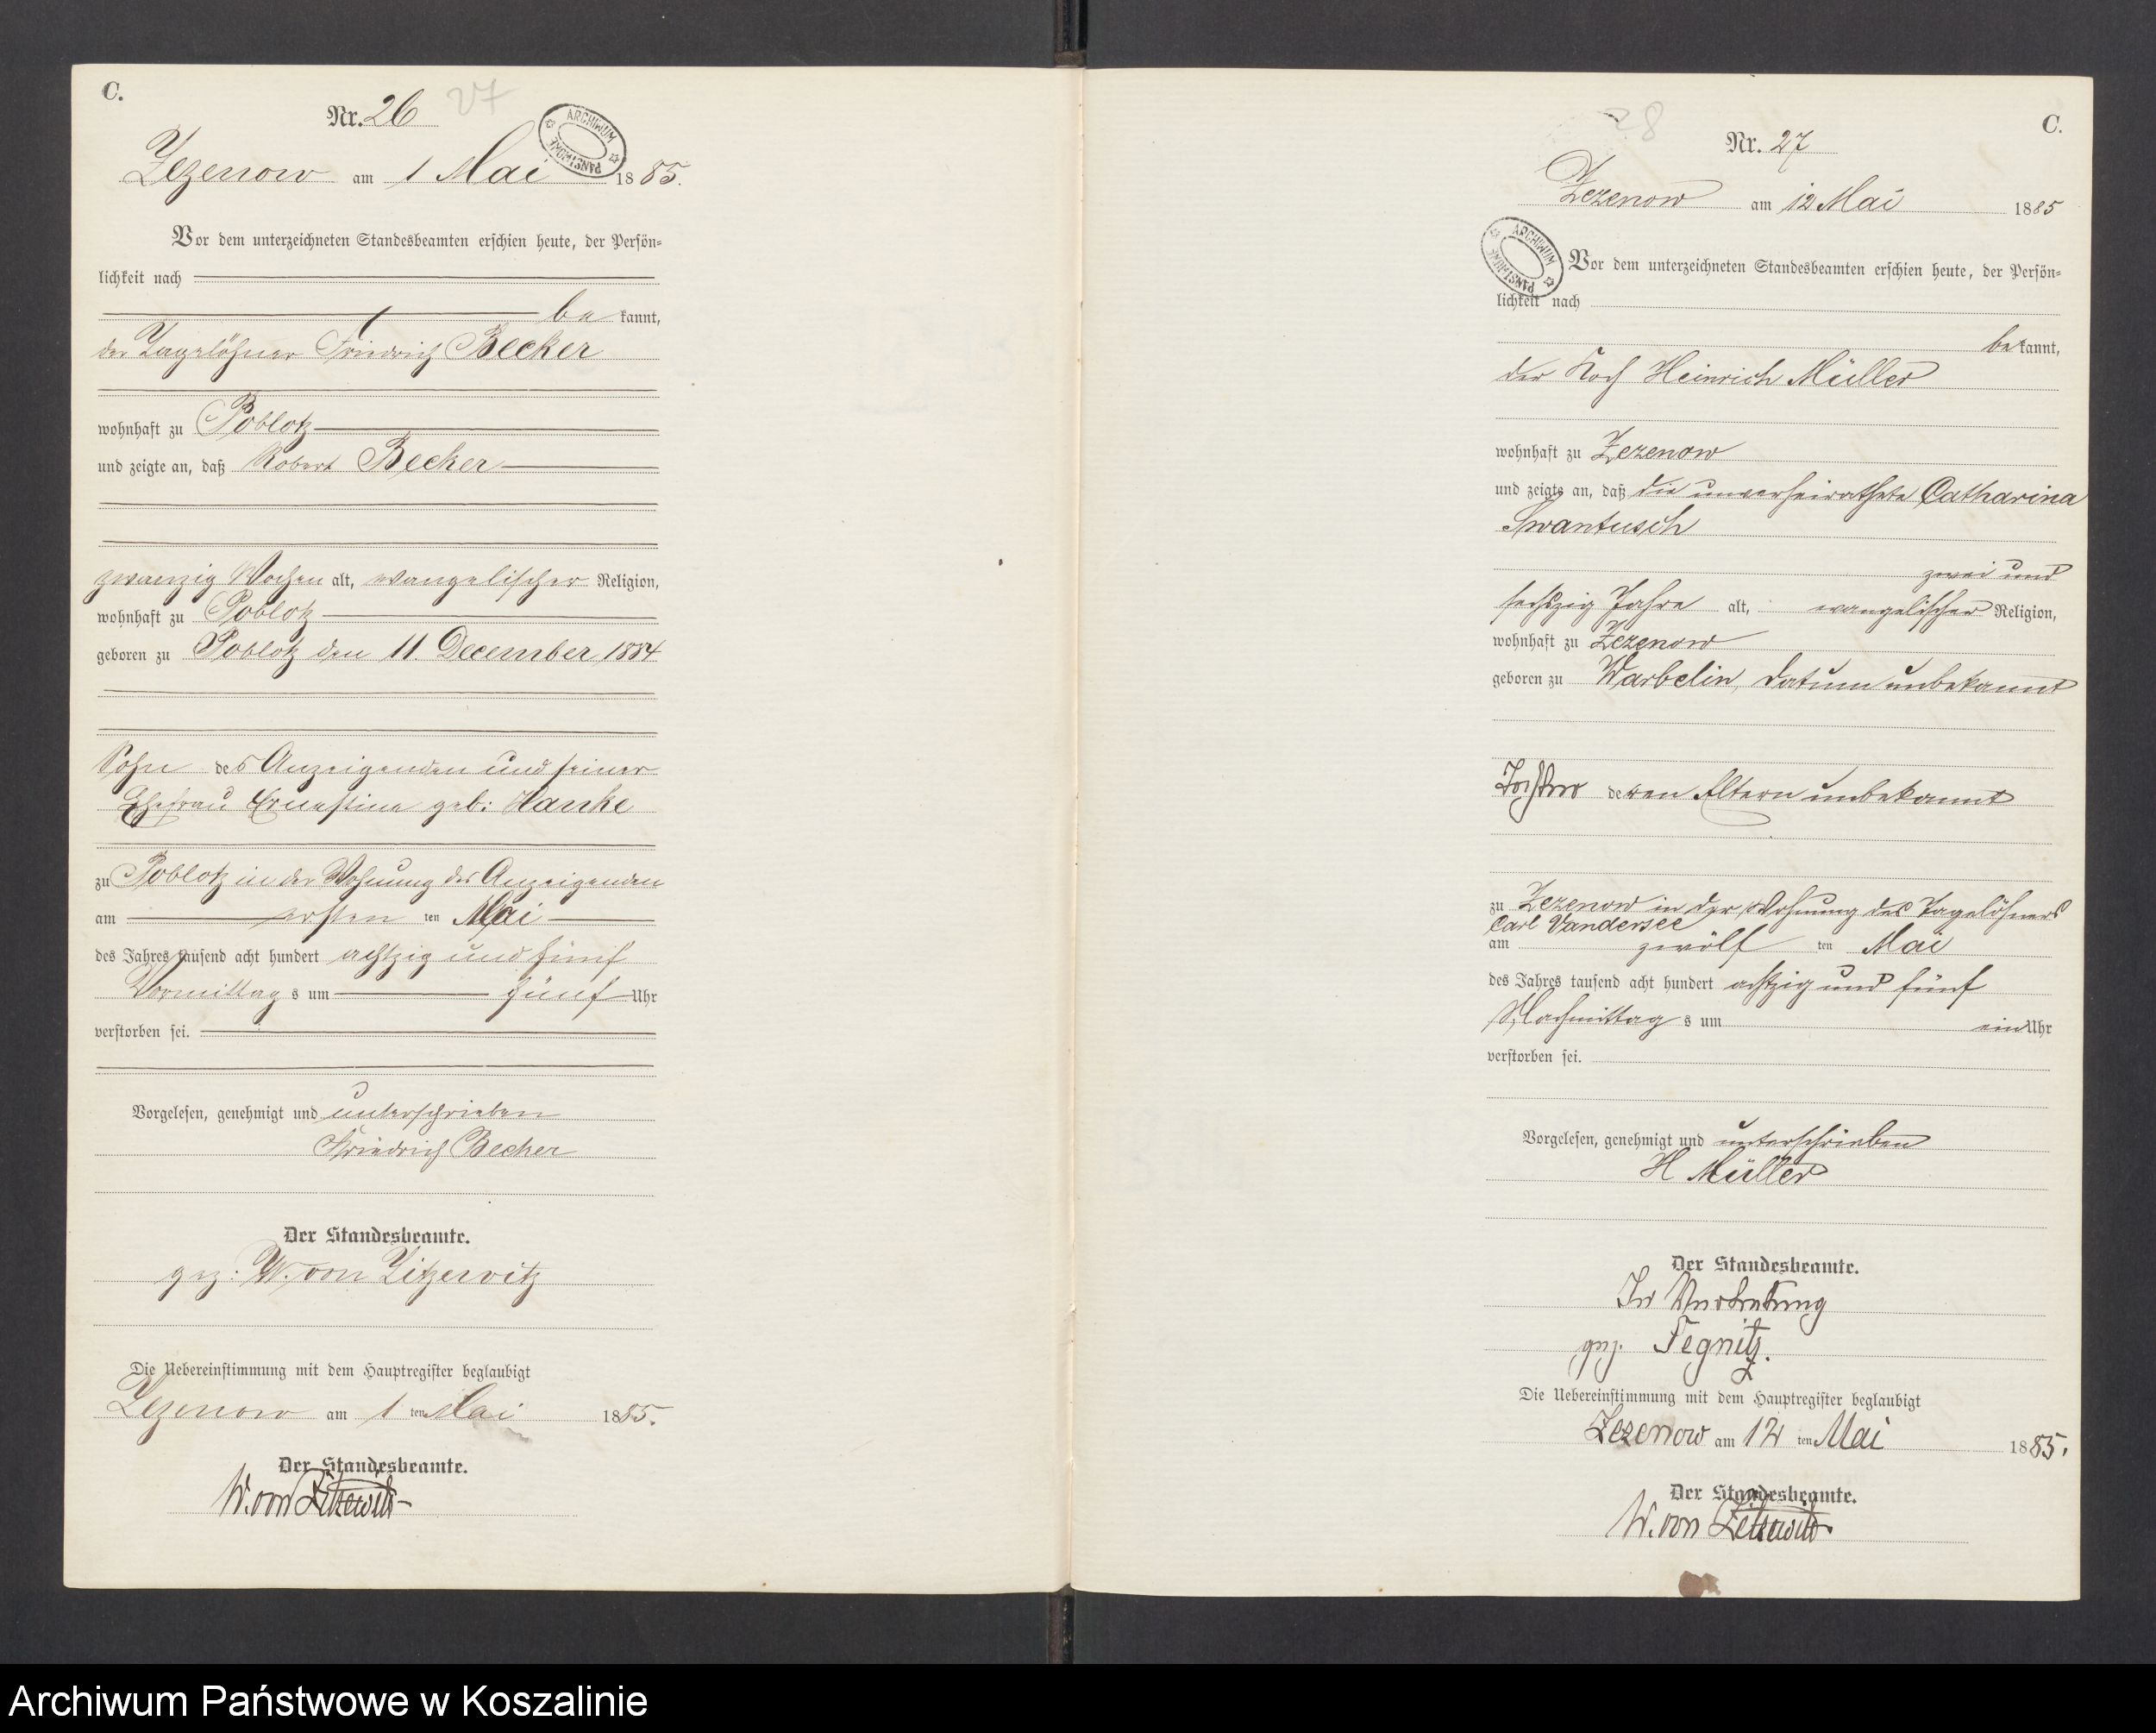 C.
Nr. 26
27
ARCHIWUM PAŃSTWOWE
Zezenow am 1 Mai 1885.
Vor dem unterzeichneten Standesbeamten erschien heute, der Persön-
lichkeit nach
be kannt,
der Tagelöhner Friedrich Becker
wohnhaft zu Poblotz
und zeigte an, daß Robert Becker
zwanzig Wochen alt, evangelischer Religion,
wohnhaft zu Poblotz
geboren zu Poblotz den 11. December 1884
Sohn des Anzeigenden und seiner
Ehefrau Ernestine geb: Hanke
zu Poblotz in der Wohnung des Anzeigenden
am ersten ten Mai
des Jahres tausend acht hundert achtzig und fünf
Vormittag s um fünf Uhr
verstorben sei.
Vorgelesen, genehmigt und unterschrieben
Friedrich Becker
Der Standesbeamte.
gez: W. von Zitzewitz
Die Uebereinstimmung mit dem Hauptregister beglaubigt
Zezenow am 1 ten Mai 1885.
Der Standesbeamte.
W. von Zitzewitz
C.
28
Nr. 27
Zezenow am 12 Mai 1885
ARCHIWUM PAŃSTWOWE
Vor dem unterzeichneten Standesbeamten erschien heute, der Persön-
lichkeit nach
be kannt,
der Koch Heinrich Müller
wohnhaft zu Zezenow
und zeigte an, daß die unverheirathete Catharina
Swantusch
zwei und
sechszig Jahre alt, evangelischer Religion,
wohnhaft zu Zezenow
geboren zu Warbelin, Datum unbekannt
Tochter deren Eltern unbekannt
zu Zezenow in der Wohnung des Tagelöhners
Carl Vandersee
am zwölf ten Mai
des Jahres tausend acht hundert achtzig und fünf
Nachmittag s um ein Uhr
verstorben sei.
Vorgelesen, genehmigt und unterschrieben
H Müller
Der Standesbeamte.
In Vertretung
gez. Tegnitz.
Die Uebereinstimmung mit dem Hauptregister beglaubigt
Zezenow am 12 ten Mai 1885.
Der Standesbeamte.
W. von Zitzewitz.
Archiwum Państwowe w Koszalinie